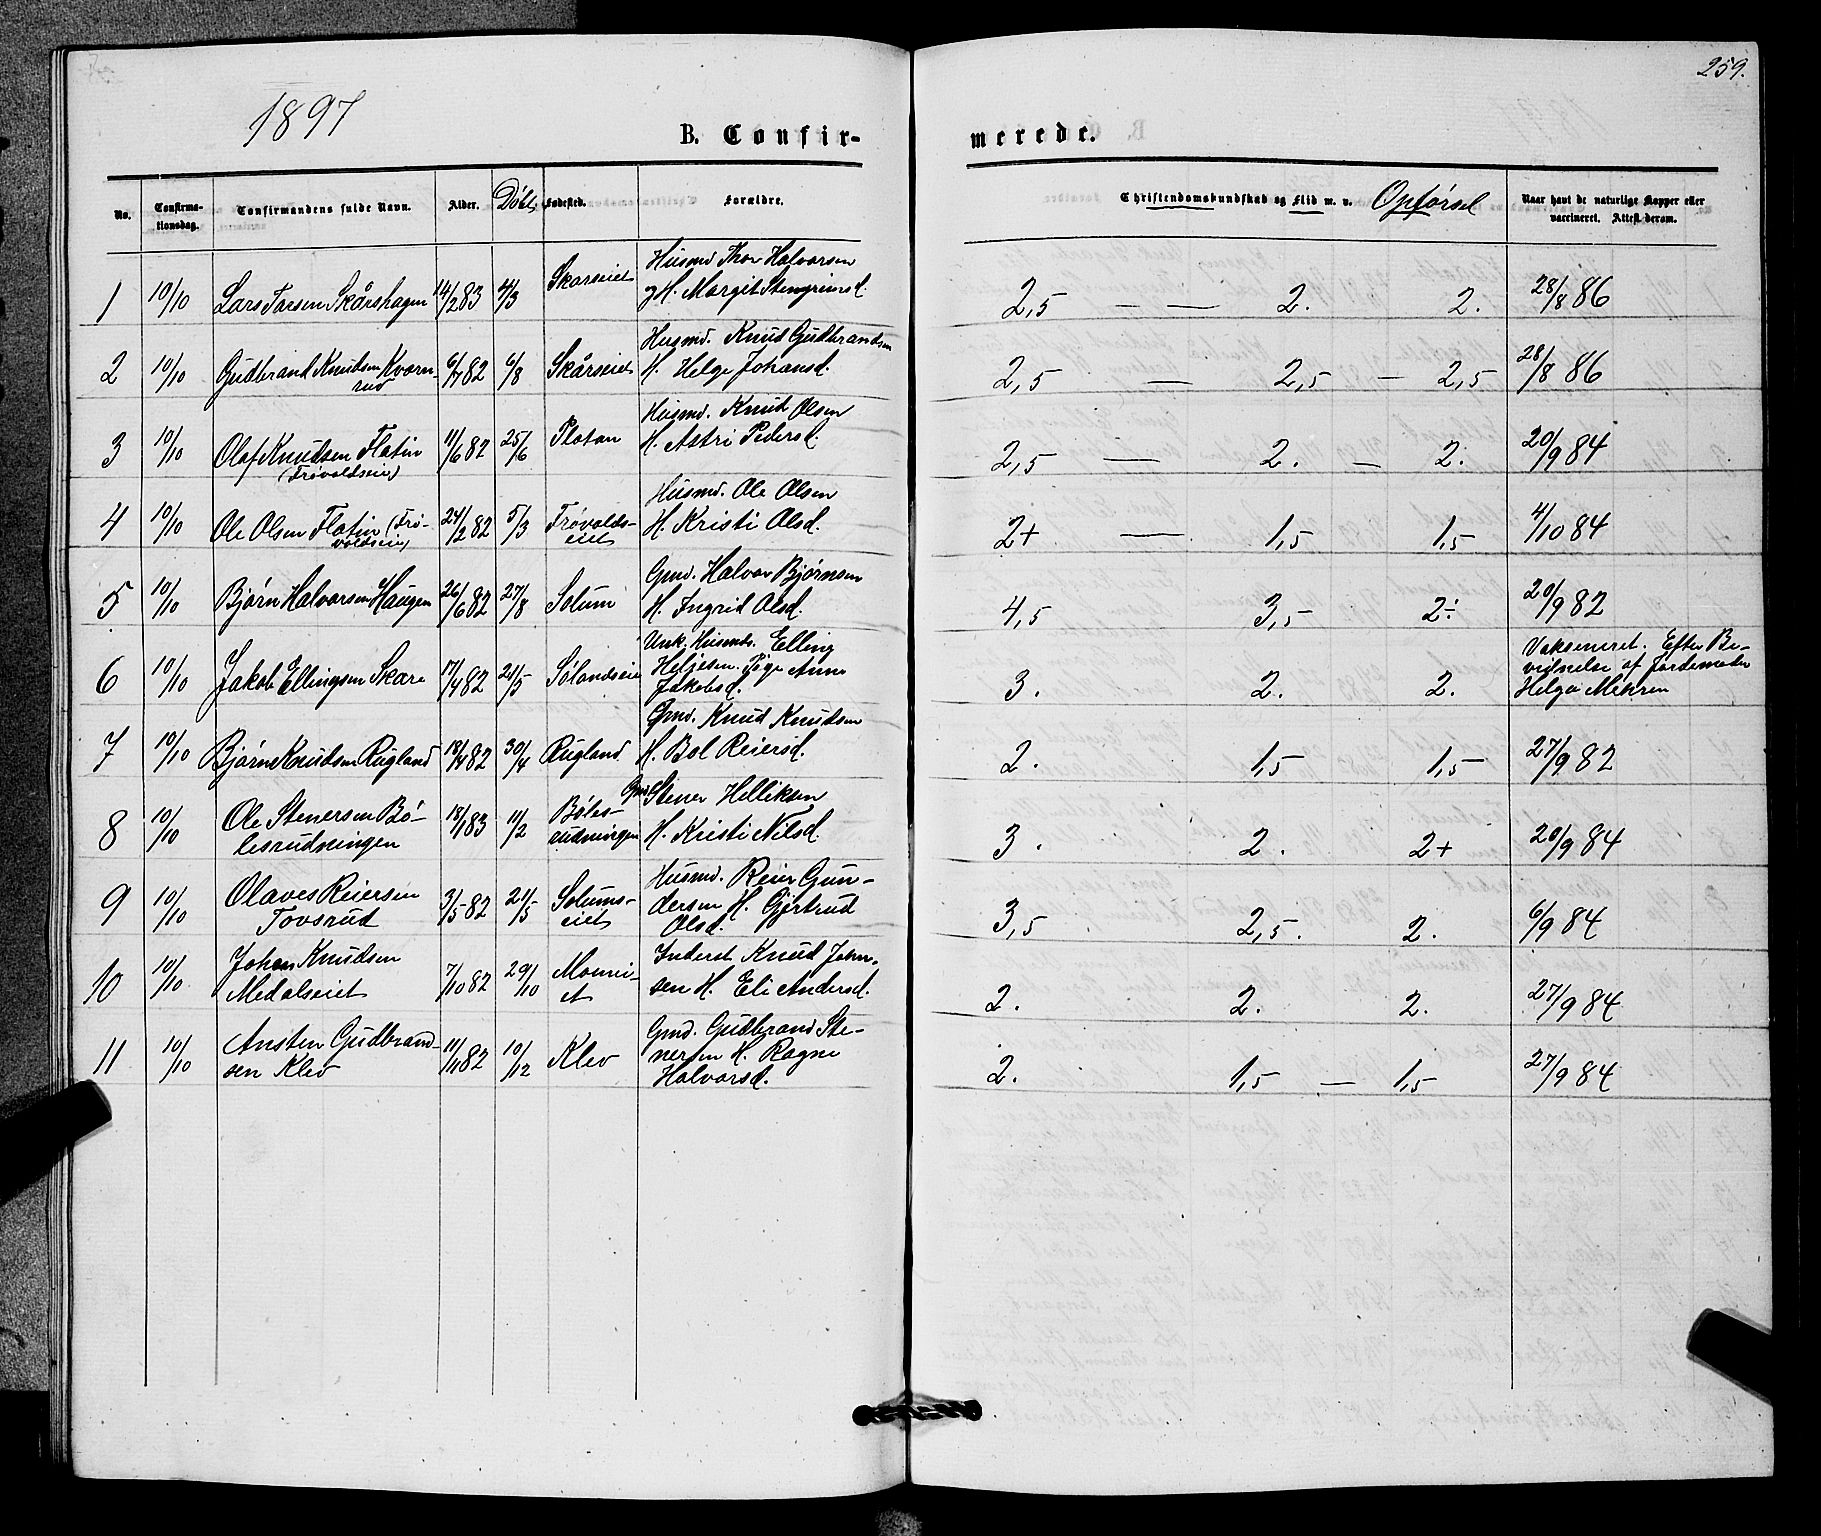 259.
1897
B. Confir-
merede.
No.
Confirma-
tionsdag.
Confirmandens fulde Navn.
Alder.
Døbt.
Fødested.
Forældre.
Christendomskundskab og Flid m. v. Opførsel
Naar havt de naturlige Kopper eller
vaccineret. Attest derom.
Husmd Thor Halvorsen
1 10/10 Lars Torsen Skårshagen 14/2 83 4/3 Skarseiet
og H. Margit Stengrimsd.
2,5 — — 2. 2. 28/8 86
Husmd. Knud Gudbrandsen
2 10/10 Gudbrand Knudsen Kvorn-
rud 6/7 82 6/8 Skårseiet H. Helge Johansd.
2,5 — 2,5 — 2,5 28/8 86
Husmd. Knud Olsen
3 10/10 Olaf Knudsen Flatin 11/6 82 25/6 Flatan H. Astri Pedersd.
(Trøvoldseie)
2,5 — 2. — 2. 20/9 84
Husmd. Ole Olsen
4 10/10 Ole Olsen Flatin (Trø-
voldseie) 24/2 82 5/3 Trøvolds-
eiet H. Kristi Olsd.
2+ — 1,5 1,5 4/10 84
Gmd. Halvor Bjørnsen
5 10/10 Bjørn Halvorsen Haugen 26/6 82 27/8 Solum H. Ingrid Olsd.
4,5 3,5 2÷ 20/9 82
Unk. Husmds. Elling
6 10/10 Jakob Ellingsen Skare 17/4 82 21/5 Sølandseie Heljesen. Pige Anne
Jakobsd.
3. 2. 2. Vaksineret. Efter Be-
vidnelse af Jordemoder
Helga Mehren
Gmd. Knud Knudsen
7 10/10 Bjørne Knudsen Rugland 18/4 82 30/4 Rugland H. Bol Reiersd.
2. 1,5 1,5 27/9 82
Gmd Stener Helliksen
8 10/10 Ole Stenersen Bø-
lesrudningen 18/1 83 11/2 Bøles-
rudningen H. Kristi Nilsd.
3. 2. 2+ 20/9 84
Husmd. Reier Gun-
9 10/10 Olaves Reiersen
Tovsrud 3/5 82 21/5 Solums-
eiet dersen H. Gjertrud
Olsd.
3,5 2,5. 2. 6/9 84
10 10/10 Johan Knudsen
Medalseiet 7/10 82 29/10 Moenei-
et Inderst Knud John-
sen H. Eli Andersd.
2. 2. 2. 27/9 84
11 10/10 Ansten Gudbrand-
sen Klev 11/11 82 10/12 Klev Gmd. Gudbrand Ste-
nersen H. Ragne
Halvorsd.
2. 1,5 — 1,5 27/9 84